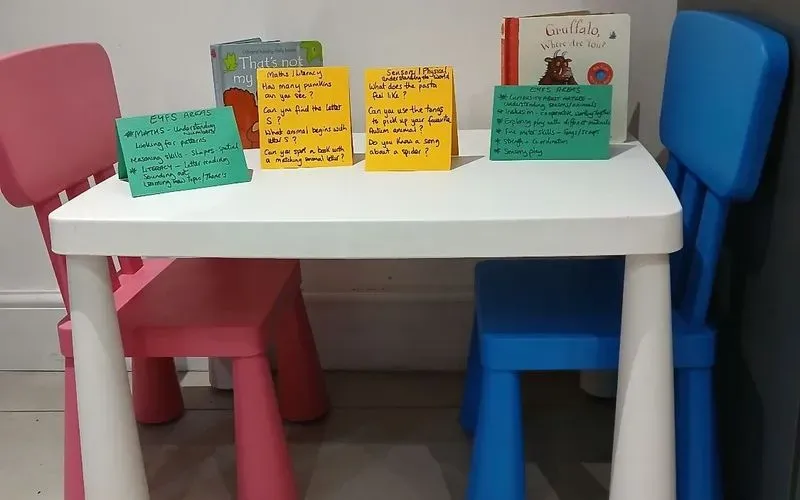 That's not
my
Gruffalo,
Where are You?
EYFS AREAS
* MATHS - Understanding
numbers
Looking for patterns
Reasoning Skills - Shapes Spatial
* LITERACY - Letter reading
Sounding out
Learning new topic/Themes
Maths/Literacy
How many pumpkins
can you see?
Can you find the letter
S?
What animal begins with
letter S?
Can you spot a book with
a matching animal letter?
Sensory/Physical
understanding the world
What does the pasta
feel like?
Can you use the tongs
to pick up your favourite
Autumn animal?
Do you know a song
about a spider?
EYFS AREAS
* Curiosity about nature -
understanding seasons/animals
* Inclusion - cooperative working together
* Exploring play with different materials
* Fine motor skills - tongs/
* Strength - Co ordination
* Sensory play